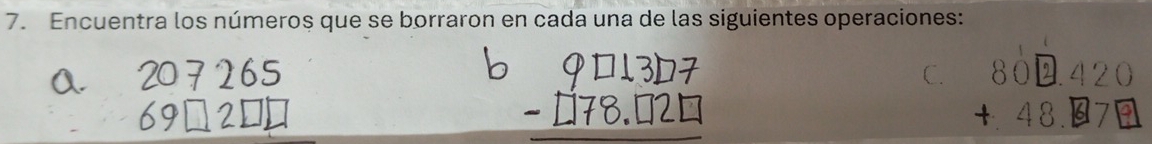 7. Encuentra los números que se borraron en cada una de las siguientes operaciones:
a. 207265 b 9□13□7 C. 80[2].420
69□2□□ -□78.□2□ + 48.[6]7[9]